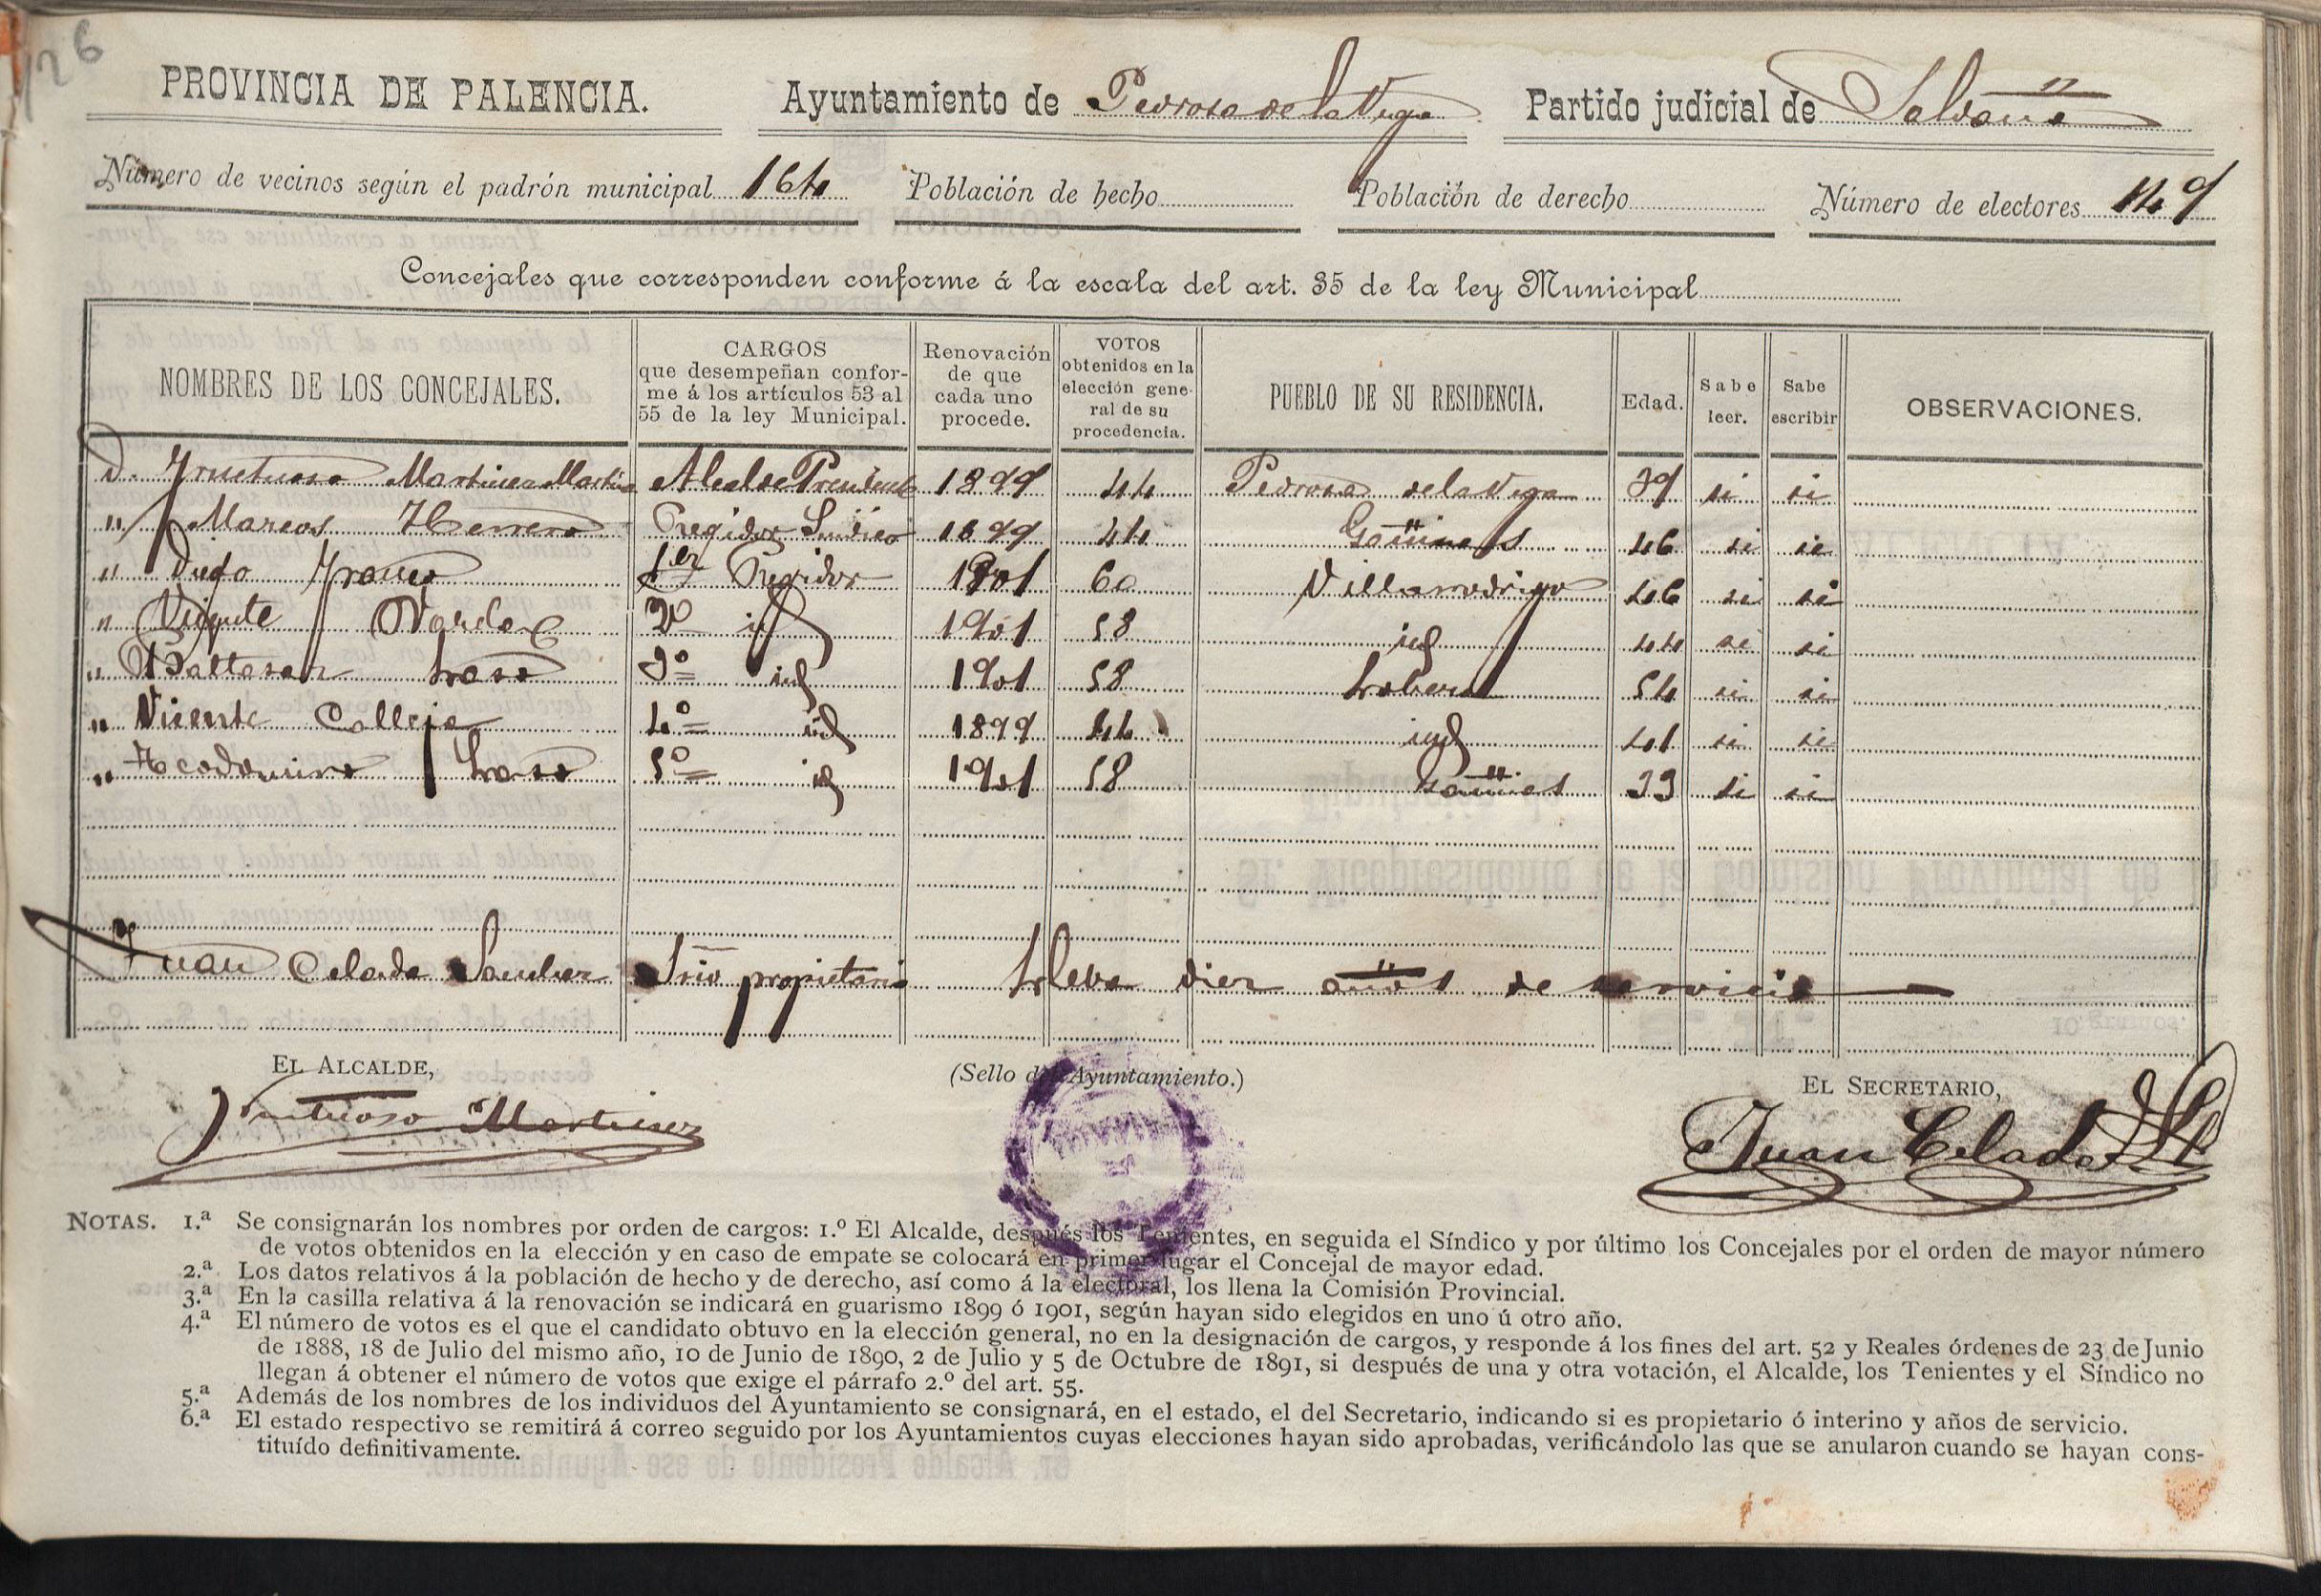 126
PROVINCIA DE PALENCIA. Ayuntamiento de Pedrosa de la Vega Partido judicial de Saldaña
Número de vecinos según el padrón municipal 164 Población de hecho Población de derecho Número de electores 149
Concejales que corresponden conforme á la escala del art. 35 de la ley Municipal
NOMBRES DE LOS CONCEJALES. CARGOS que desempeñan conforme á los artículos 53 al 55 de la ley Municipal. Renovación de que cada uno procede. VOTOS obtenidos en la elección general de su procedencia. PUEBLO DE SU RESIDENCIA. Edad. Sabe leer. Sabe escribir OBSERVACIONES.
D. Fructuoso Martinez Martin Alcalde Presidente 1899 44 Pedrosa de la Vega 39 si si
" Marcos Herrero Regidor Sindico 1899 44 Gañinas 46 si si
" Franco 1er Regidor 1901 60 Villarrodrigo 46 si si
" 2º id 1901 58 id 44 si si
" Baltasar Laso 3º id 1901 58 Lobera 54 si si
" Vicente Calleja 4º id 1899 44 id 41 si si
" Teodomiro Laso 5º id 1901 58 Gañinas 33 si si
Juan Celada Sanchez Srio propietario Lleva diez años de servicio
EL ALCALDE, (Sello del Ayuntamiento.) EL SECRETARIO,
Fructuoso Martinez Juan Celada
NOTAS. 1.ª Se consignarán los nombres por orden de cargos: 1.º El Alcalde, después los Tenientes, en seguida el Síndico y por último los Concejales por el orden de mayor número
de votos obtenidos en la elección y en caso de empate se colocará en primer lugar el Concejal de mayor edad.
2.ª Los datos relativos á la población de hecho y de derecho, así como á la electoral, los llena la Comisión Provincial.
3.ª En la casilla relativa á la renovación se indicará en guarismo 1899 ó 1901, según hayan sido elegidos en uno ú otro año.
4.ª El número de votos es el que el candidato obtuvo en la elección general, no en la designación de cargos, y responde á los fines del art. 52 y Reales órdenes de 23 de Junio
de 1888, 18 de Julio del mismo año, 10 de Junio de 1890, 2 de Julio y 5 de Octubre de 1891, si después de una y otra votación, el Alcalde, los Tenientes y el Síndico no
llegan á obtener el número de votos que exige el párrafo 2.º del art. 55.
5.ª Además de los nombres de los individuos del Ayuntamiento se consignará, en el estado, el del Secretario, indicando si es propietario ó interino y años de servicio.
6.ª El estado respectivo se remitirá á correo seguido por los Ayuntamientos cuyas elecciones hayan sido aprobadas, verificándolo las que se anularon cuando se hayan cons-
tituído definitivamente.